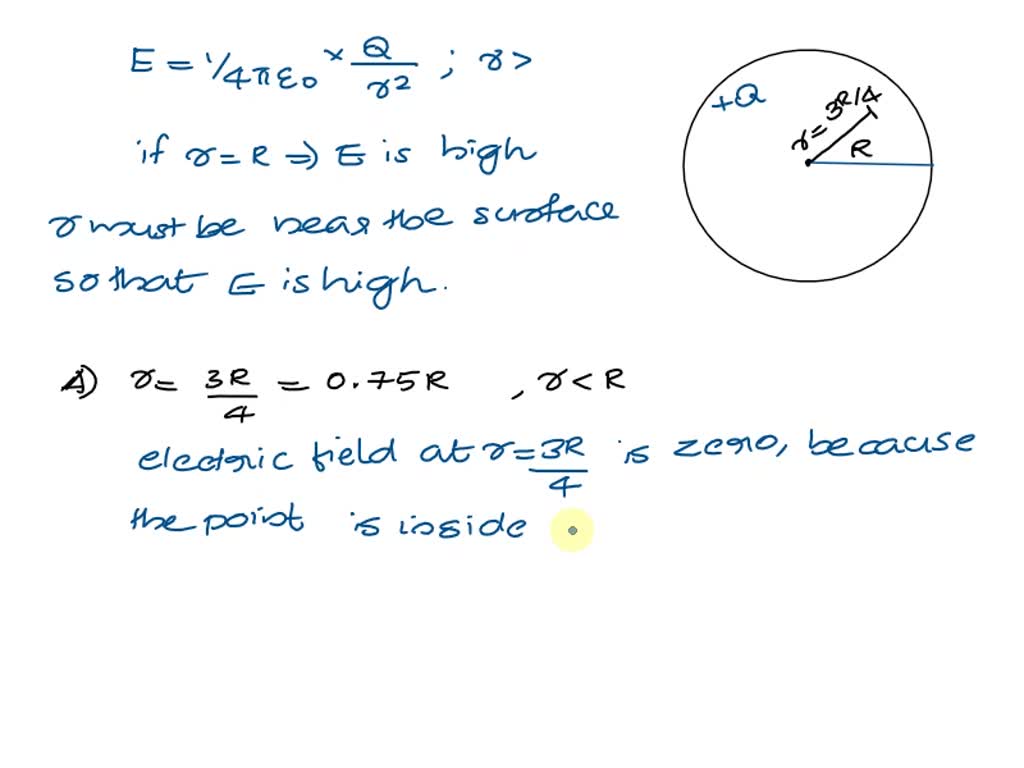 E = 1/4πε₀ × Q/r² ; r >
if r = R ⇒ E is high
r must be near the surface
so that E is high.
+Q
r = 3R/4
R
A) r = 3R/4 = 0.75R , r < R
electric field at r = 3R/4 is zero, because
the point is inside